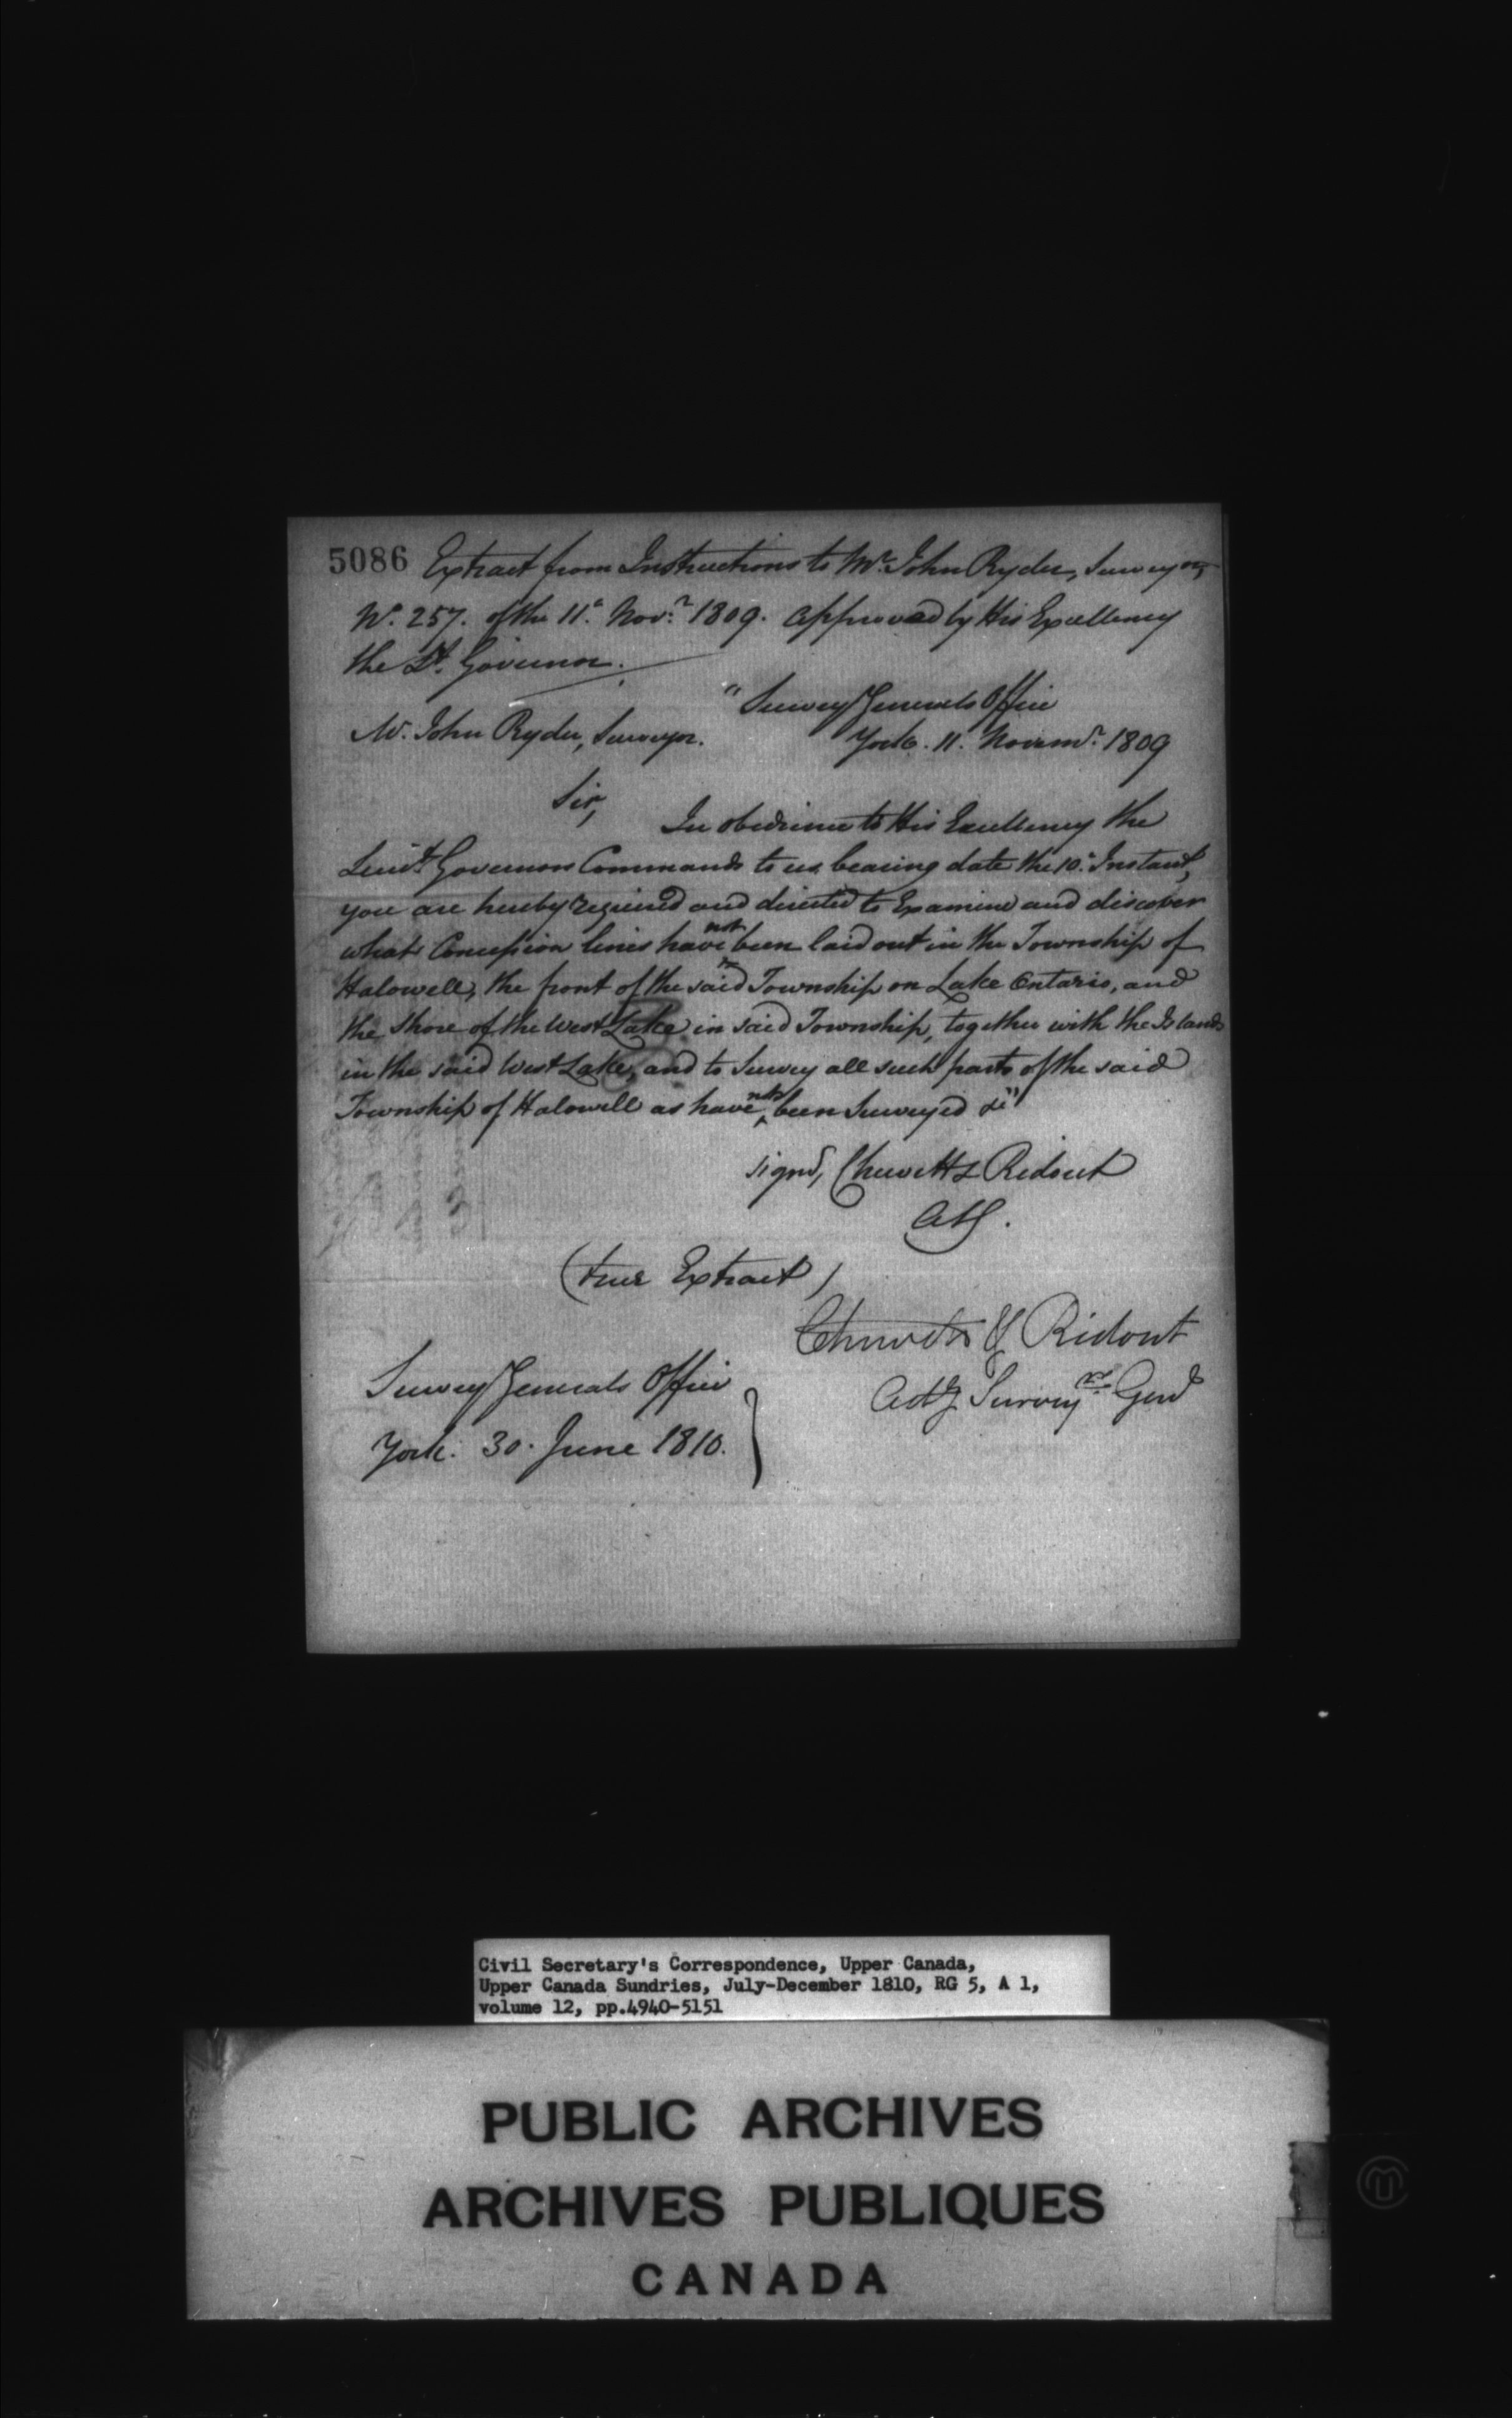 5086 Extract from Instructions to Mr. John Ryder, Surveyor,
No. 257. of the 11th. Novr. 1809. approved by His Excellency
the Lt. Governor.
"Survey Generals Office
Mr. John Ryder, Surveyor.
York. 11. Novemr. 1809
Sir,
In obedience to His Excellency the
Lieut. Governors Commands to us bearing date the 10th. Instant,
you are hereby required and directed to Examine and discover
what Concession lines have not been laid out in the Township of
Halowell, the front of the said Township on Lake Ontario, and
the Shore of the West Lake in said Township, together with the Islands
in the said West Lake, and to Survey all such parts of the said
Township of Halowell as have not been Surveyed &c"
signd, Chewett & Ridout
ASG.
(true Extract)
Chewett & Ridout
Actg Surveyrs Genl
Survey Generals Office
York. 30. June 1810.
Civil Secretary's Correspondence, Upper Canada,
Upper Canada Sundries, July-December 1810, RG 5, A 1,
volume 12, pp.4940-5151
PUBLIC ARCHIVES
ARCHIVES PUBLIQUES
CANADA